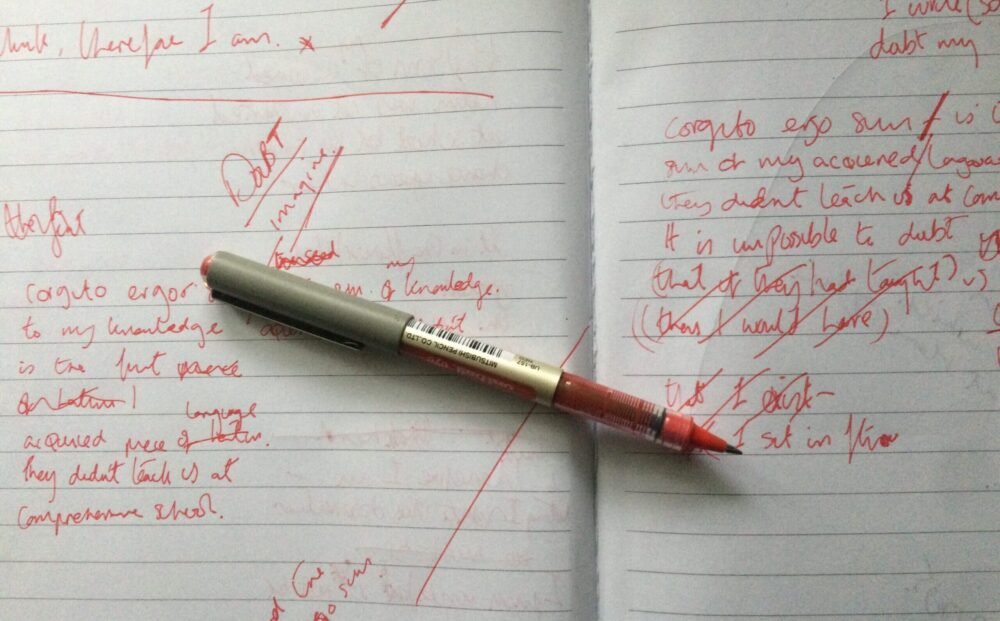 think, therefore I am.
DaBT
imagine.
therefore
my
corguto ergo sm. of knowledge.
to my knowledge
is the first
language
acquired piece of latin.
They didn't teach us at
comprehensive school.
ergo sum.
MITSUBISHI PENCIL CO.LTD.
UB-157
I write (so
dabt my
corguto ergo sum is
sum of my acquered language
they didn't teach us at com
It is unposible to dabt
(that if they had taught) us
(then I would have)
that I exist
I sit in